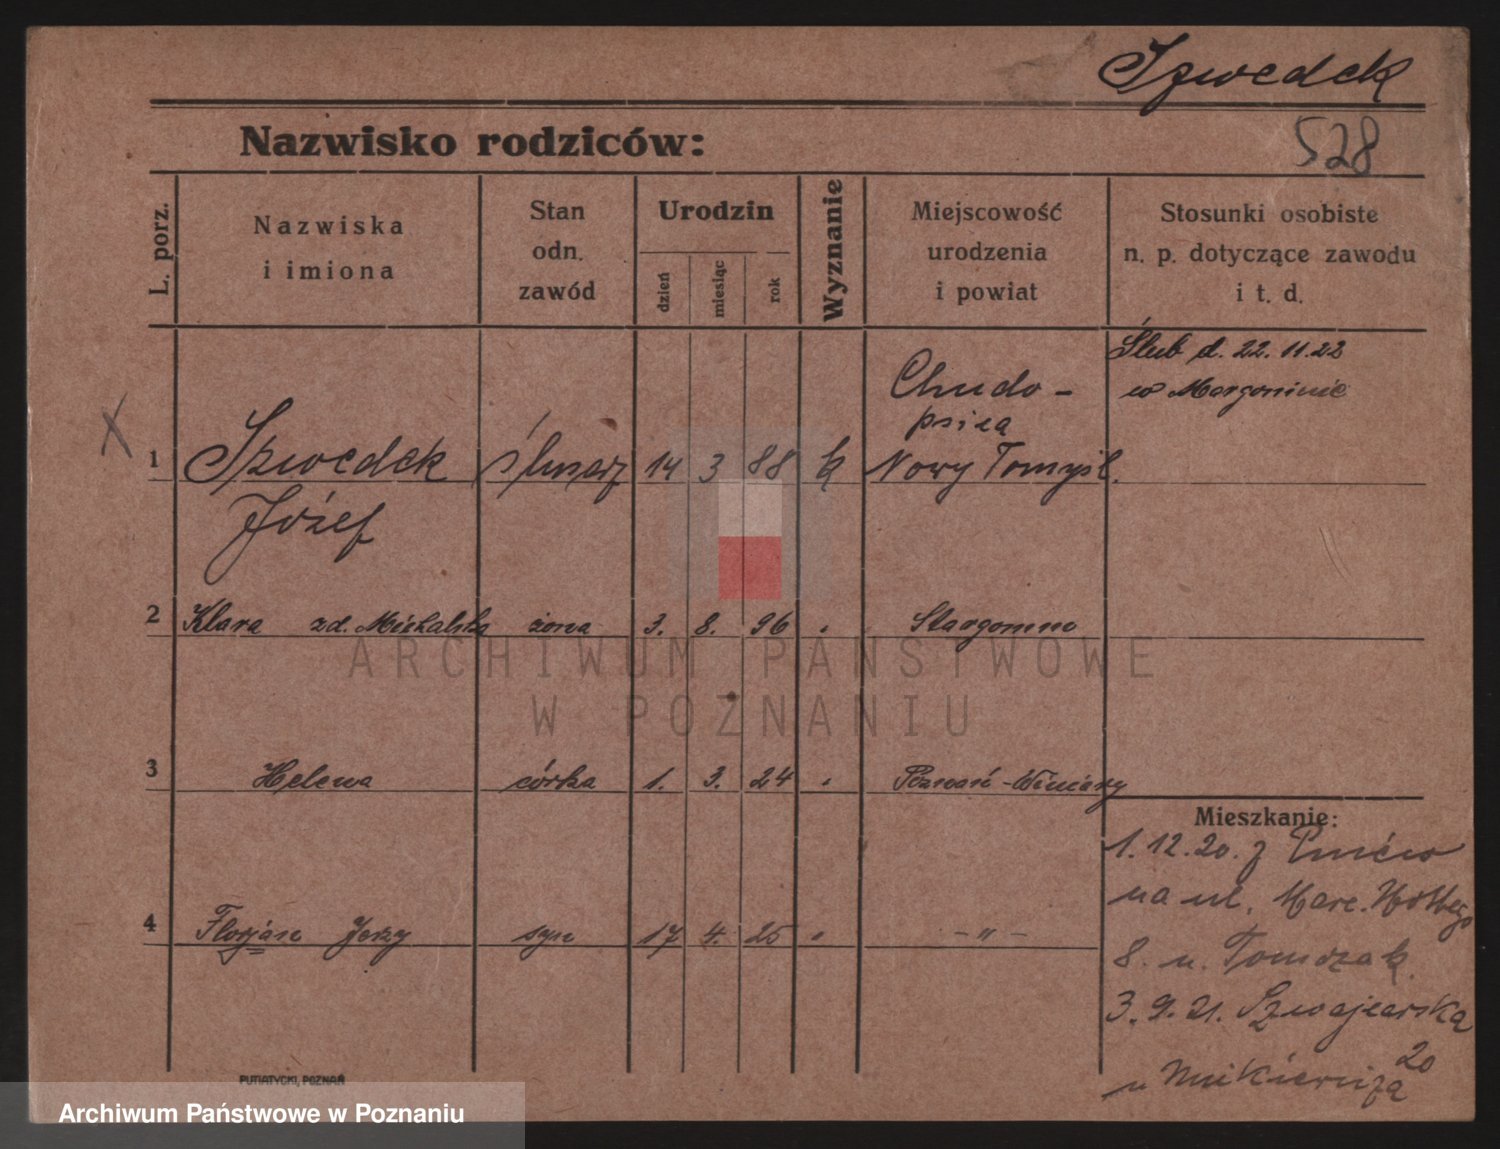 Szwedek
528
Nazwisko rodziców:
L. porz.
Nazwiska
i imiona
Stan
odn.
zawód
Urodzin
dzień
miesiąc
rok
Wyznanie
Miejscowość
urodzenia
i powiat
Stosunki osobiste
n. p. dotyczące zawodu
i t. d.
Ślub d. 22. 11. 22
w Margoninie
Chudo-
psica
X 1 Szwedek ślusarz 14 3 88 k Nowy Tomyśl.
Józef
2 Klara zd. Michalska żona 3. 8. 96
3 Helena córka 1. 3. 24 Poznań-Winiary
4 Florjan Jerzy syn 17 4. 25 - " -
Mieszkanie:
1. 12. 20. z
na ul. Marc.
8. u. Tomczak
3. 9. 21. Szwajcarska
20
u
PUTIATYCKI, POZNAŃ
ARCHIWUM PAŃSTWOWE
W POZNANIU
Archiwum Państwowe w Poznaniu